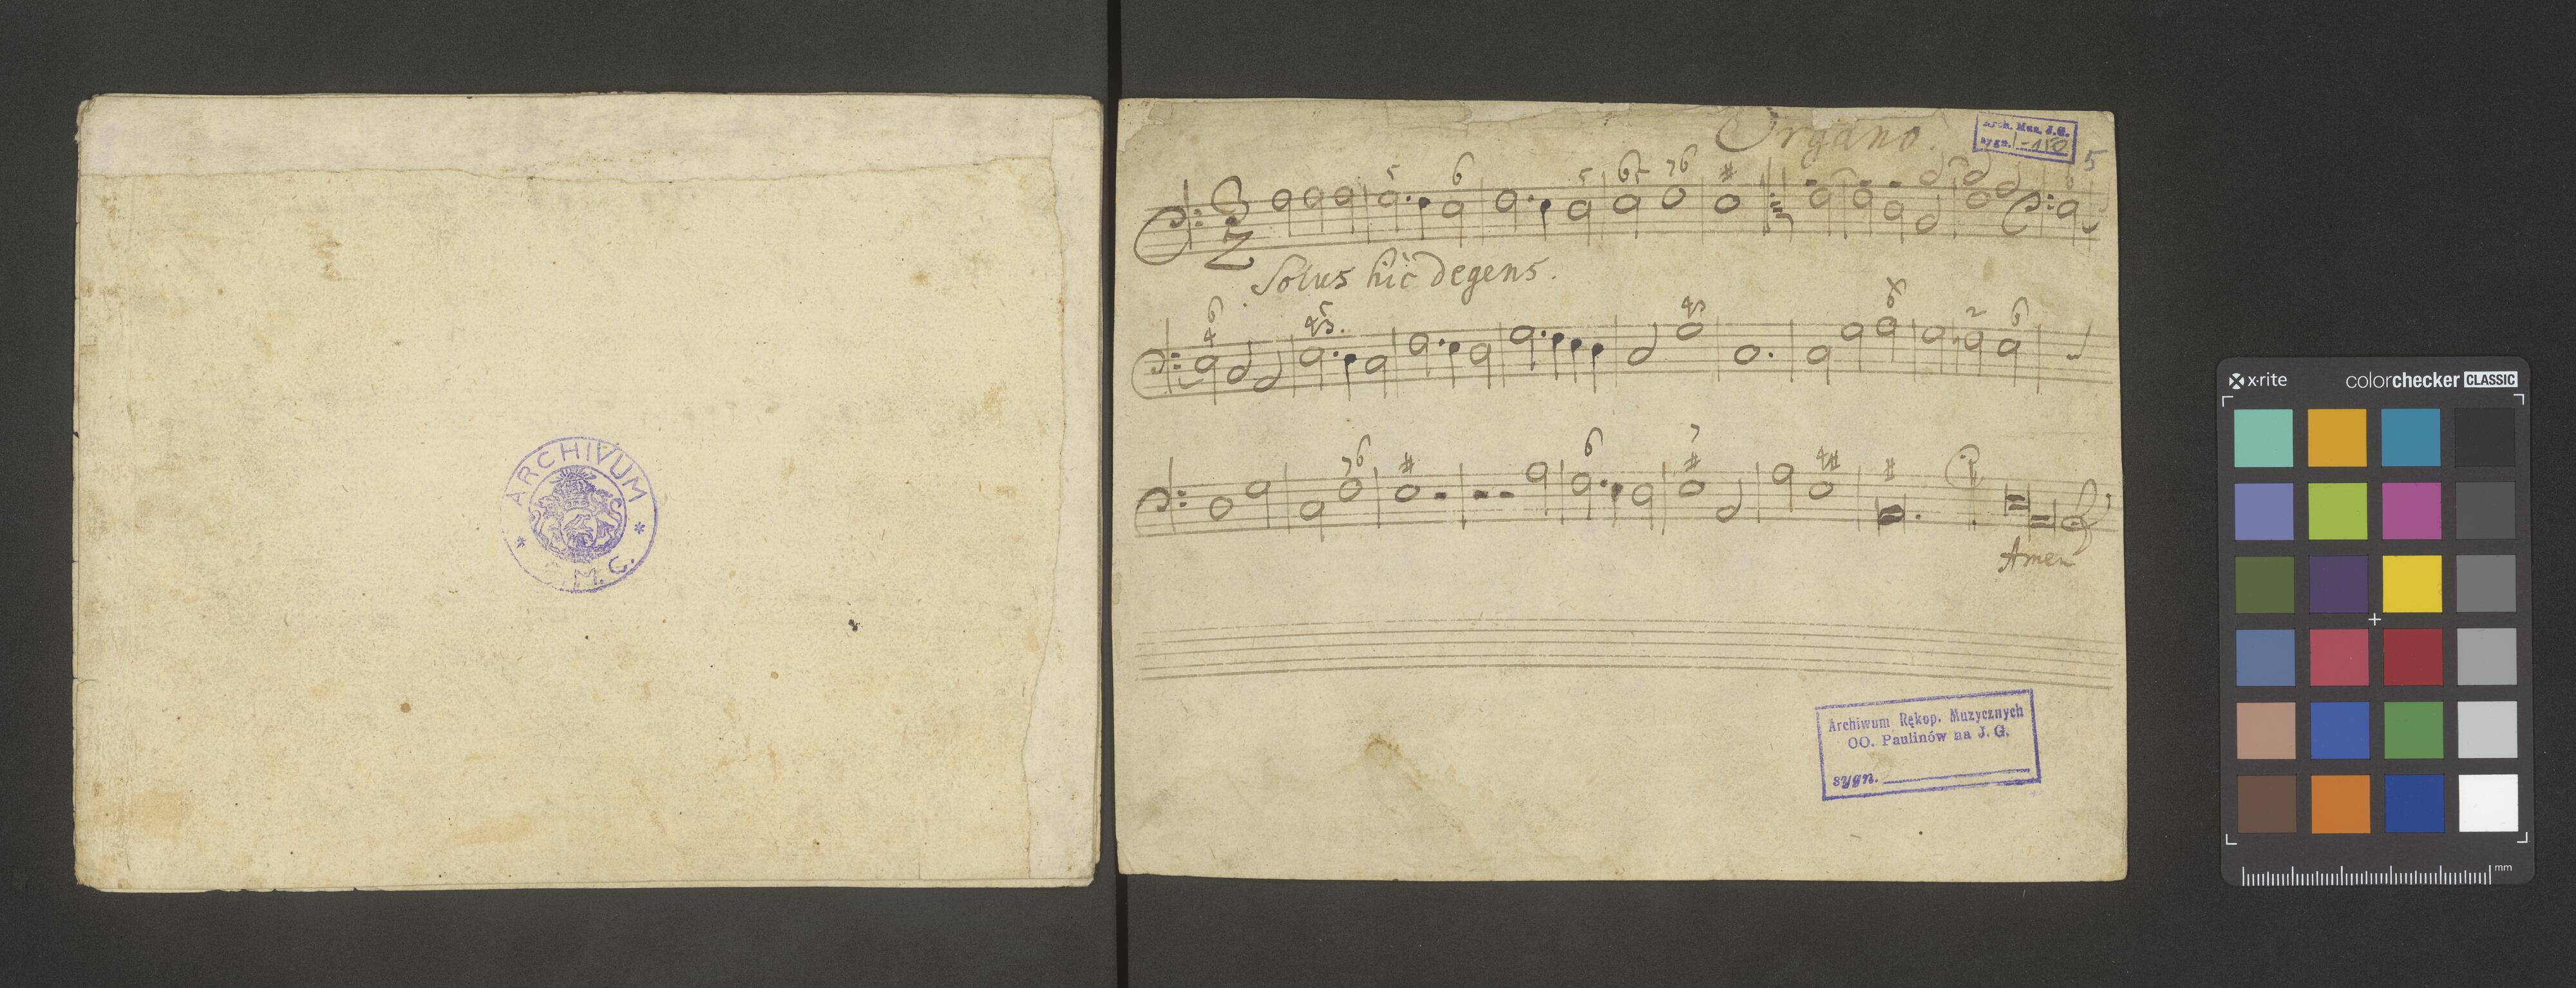 ARCHIVUM
M. G.
Organo.
Arch. Muz. J.G.
sygn. I-150
5
5 6 5 65 76 #
3
2
Solus hic degens.
6
4 43. 43 6 2 6
76 # 6 7 # 4# #
Amen
Archiwum Rękop. Muzycznych
OO. Paulinów na J. G.
sygn.
x-rite colorchecker CLASSIC
mm